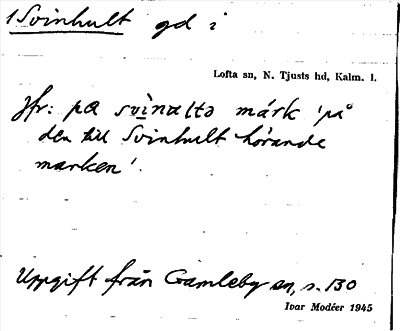 1 Svinhult gd i
Lofta sn, N. Tjusts hd, Kalm. l.
Jfr: pα svìnαltə márk 'på
den till Svinhult hörande
marken'.
Uppgift från Gamleby sn, s. 130
Ivar Modéer 1945